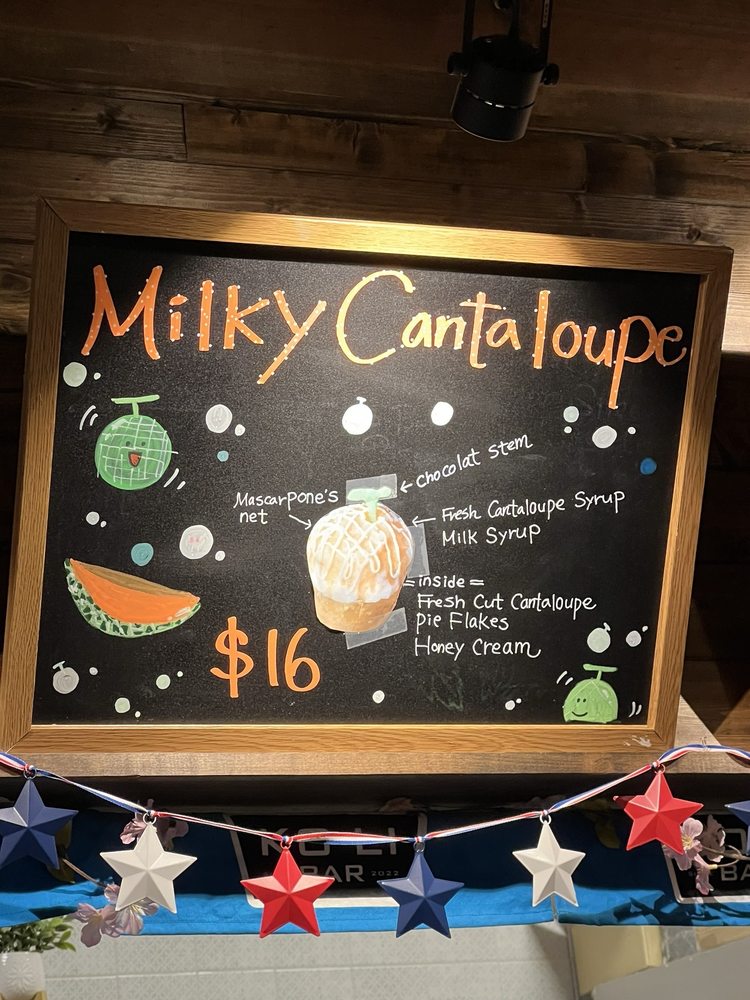 Milky Cantaloupe
chocolat stem
Mascarpone's
net
Fresh Cantaloupe Syrup
Milk Syrup
=inside=
Fresh Cut Cantaloupe
pie Flakes
Honey Cream
$16
BAR 2022
BA